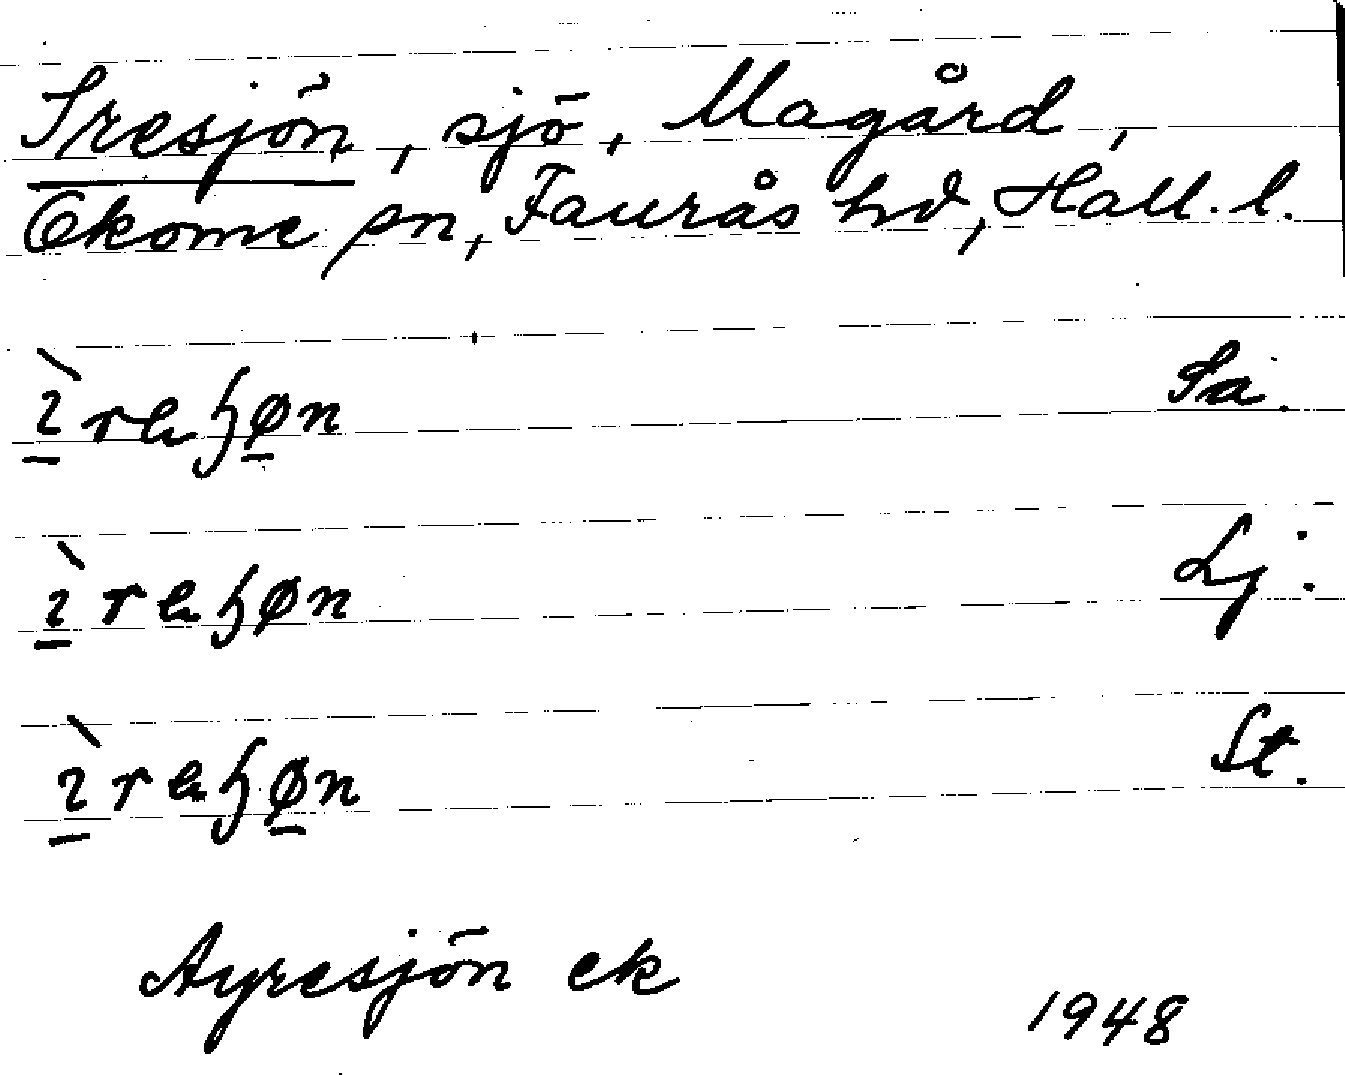 Iresjön, sjö, Magård,
Ekome sn, Faurås hd, Hall. l.
ɩ̀reɧøn Sa.
ɩ̀reɧøn Lj.
ɩ̀reɧøn St.
Ayresjön ek
1948